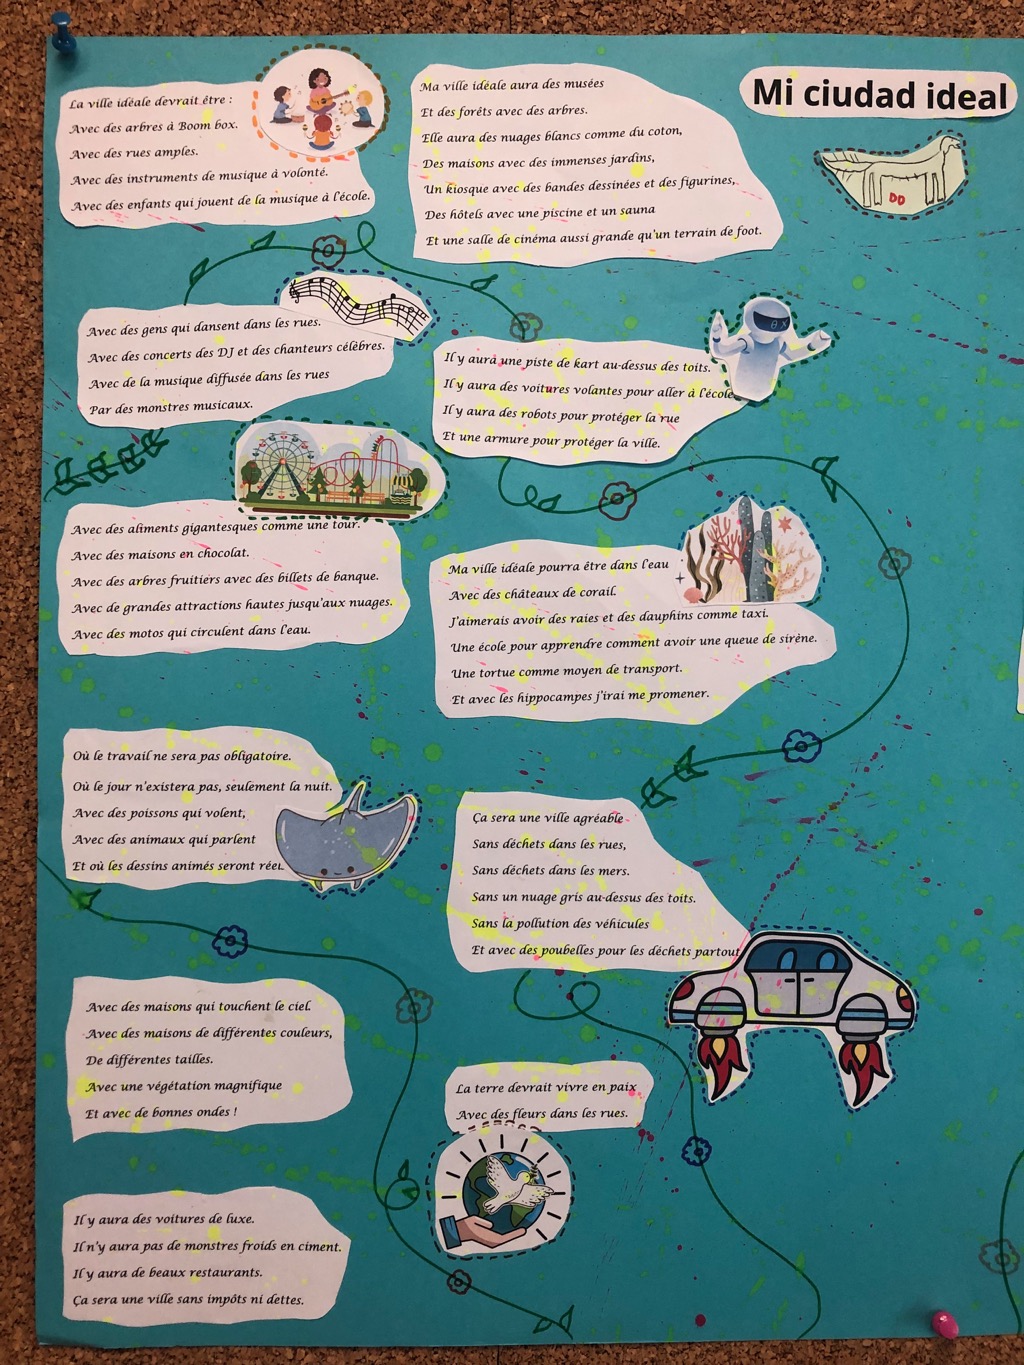 Mi ciudad ideal
La ville idéale devrait être :
Avec des arbres à Boom box.
Avec des rues amples.
Avec des instruments de musique à volonté.
Avec des enfants qui jouent de la musique à l'école.
Ma ville idéale aura des musées
Et des forêts avec des arbres.
Elle aura des nuages blancs comme du coton,
Des maisons avec des immenses jardins,
Un kiosque avec des bandes dessinées et des figurines,
Des hôtels avec une piscine et un sauna
Et une salle de cinéma aussi grande qu'un terrain de foot.
DD
Avec des gens qui dansent dans les rues.
Avec des concerts des DJ et des chanteurs célèbres.
Avec de la musique diffusée dans les rues
Par des monstres musicaux.
Il y aura une piste de kart au-dessus des toits.
Il y aura des voitures volantes pour aller à l'école
Il y aura des robots pour protéger la rue
Et une armure pour protéger la ville.
Avec des aliments gigantesques comme une tour.
Avec des maisons en chocolat.
Avec des arbres fruitiers avec des billets de banque.
Avec de grandes attractions hautes jusqu'aux nuages.
Avec des motos qui circulent dans l'eau.
Ma ville idéale pourra être dans l'eau
Avec des châteaux de corail.
J'aimerais avoir des raies et des dauphins comme taxi.
Une école pour apprendre comment avoir une queue de sirène.
Une tortue comme moyen de transport.
Et avec les hippocampes j'irai me promener.
Où le travail ne sera pas obligatoire.
Où le jour n'existera pas, seulement la nuit.
Avec des poissons qui volent,
Avec des animaux qui parlent
Et où les dessins animés seront réel.
Ça sera une ville agréable
Sans déchets dans les rues,
Sans déchets dans les mers.
Sans un nuage gris au-dessus des toits.
Sans la pollution des véhicules
Et avec des poubelles pour les déchets partout
Avec des maisons qui touchent le ciel.
Avec des maisons de différentes couleurs,
De différentes tailles.
Avec une végétation magnifique
Et avec de bonnes ondes !
La terre devrait vivre en paix
Avec des fleurs dans les rues.
Il y aura des voitures de luxe.
Il n'y aura pas de monstres froids en ciment.
Il y aura de beaux restaurants.
Ça sera une ville sans impôts ni dettes.